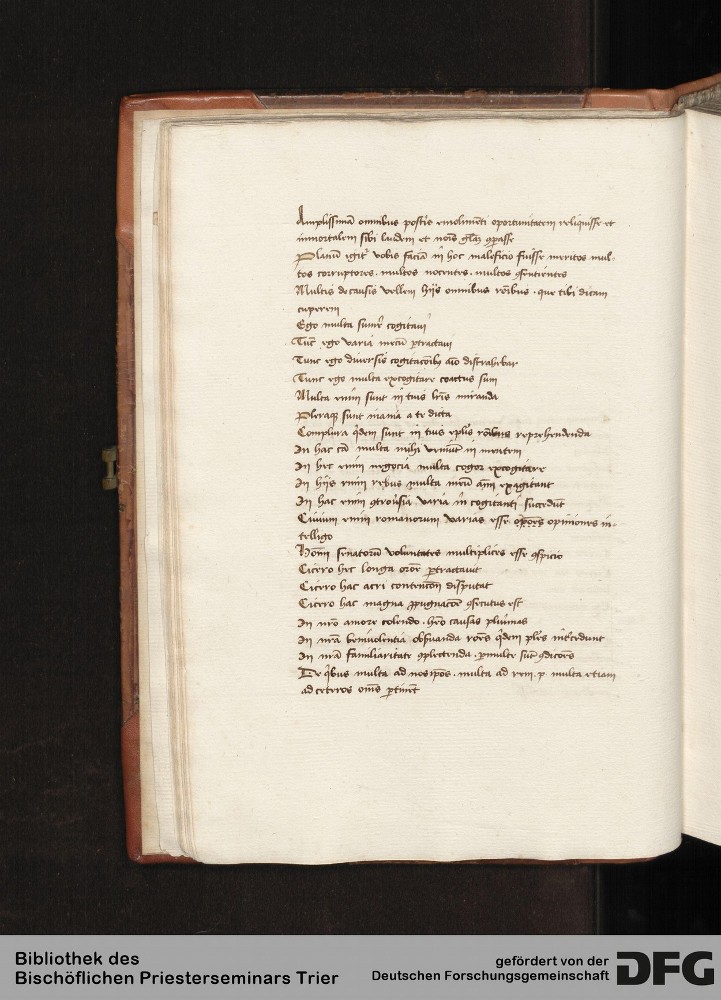 Amplissimā omnibus postis emolimēti oportunitatem reliquisse et
immortalem sibi laudem et nois gl̄am 9passe
Planū igit᷑ vobis faciā in hoc maleficio fuisse meritos mul-
tos corruptores . multos nocentes . multos 9sentientes
Multis de causis vellem hijs omnibus rōibus . que tibi dicam
cuperem
Ego multa sum̄e cogitavi
Tūc ego varia mecū ptractavi
Tunc ego diversis cogitacōibꝫ aīo distrahebar
Tunc ego multa excogitare coactus sum
Multa enim sunt in tuis lr̄is miranda
Pleraqꝫ sunt inania a te dicta
Complura qdem sunt in tuis eplīs rōibus reprehendenda
In hac cā multa mihi veniūt in mentem
In hec enim negocia multa cogor excogitare
In hijs enim rebus multa meū aīm exagitant
In hac enim 9trov̄sia varia in cogitanti succedūt
Civium enim romanorum varias esse opiniones in-
telligo
Hoīm senatorū voluntates multiplices esse 9spicio
Cicero hec longa orōe ptractavit
Cicero hac acri contencōn disputat
Cicero hac magna ppugnacōe 9secutus est
In nr̄o amore colendo . heo causas plurimas
In nr̄a benivolentia obs̄uanda rōes qdem pl̄es int̄cedunt
In nr̄a familiaritate 9plectenda . pmulte sūt 9dicōes
De qibus multa ad nos ipōs . multa ad rem . p . multa etiam
ad ceteros oīns ptinēt
Bibliothek des
Bischöflichen Priesterseminars Trier
gefördert von der
Deutschen Forschungsgemeinschaft
DFG